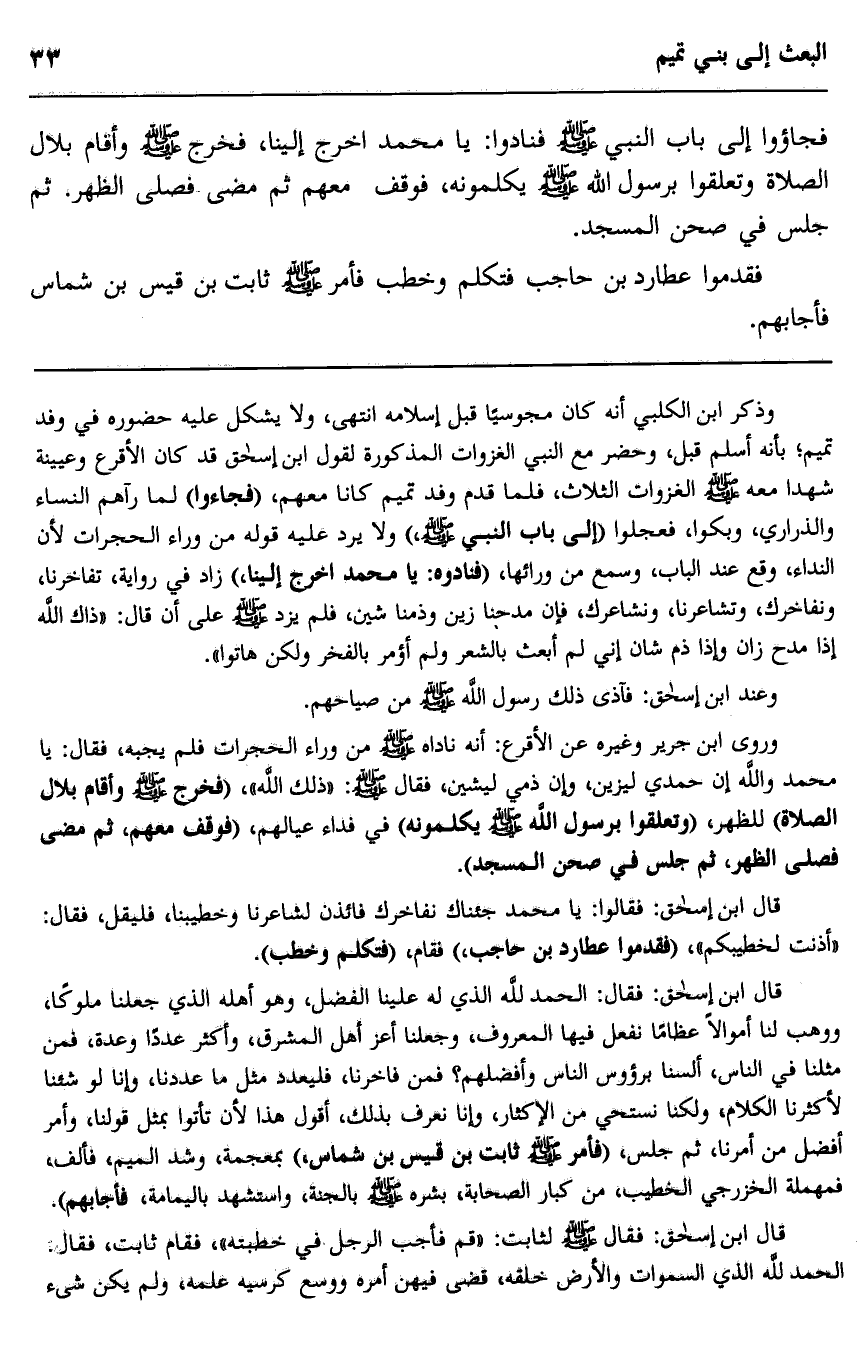 البعث إلى بني تميم ٣٣
فجاؤوا إلى باب النبي ﷺ فنادوا: يا محمد اخرج إلينا، فخرج ﷺ وأقام بلال
الصلاة وتعلقوا برسول الله ﷺ يكلمونه، فوقف معهم ثم مضى فصلى الظهر. ثم
جلس في صحن المسجد.
فقدموا عطارد بن حاجب فتكلم وخطب فأمر ﷺ ثابت بن قيس بن شماس
فأجابهم.
وذكر ابن الكلبي أنه كان مجوسيًا قبل إسلامه انتهى، ولا يشكل عليه حضوره في وفد
تميم؛ بأنه أسلم قبل، وحضر مع النبي الغزوات المذكورة لقول ابن إسحٰق قد كان الأقرع وعيينة
شهدا معه ﷺ الغزوات الثلاث، فلما قدم وفد تميم كانا معهم، (فجاءوا) لما رآهم النساء
والذراري، وبكوا، فعجلوا (إلى باب النبي ﷺ،) ولا يرد عليه قوله من وراء الحجرات لأن
النداء، وقع عند الباب، وسمع من ورائها، (فنادوه: يا محمد اخرج إلينا،) زاد في رواية، تفاخرنا،
ونفاخرك، وتشاعرنا، ونشاعرك، فإن مدحنا زين وذمنا شين، فلم يزد ﷺ على أن قال: «ذاك اللَّه
إذا مدح زان وإذا ذم شان إني لم أبعث بالشعر ولم أؤمر بالفخر ولكن هاتوا».
وعند ابن إسحٰق: فآذى ذلك رسول اللَّه ﷺ من صياحهم.
وروى ابن جرير وغيره عن الأقرع: أنه ناداه ﷺ من وراء الحجرات فلم يجبه، فقال: يا
محمد واللَّه إن حمدي ليزين، وإن ذمي ليشين، فقال ﷺ: «ذلك اللَّه»، (فخرج ﷺ وأقام بلال
الصلاة) للظهر، (وتعلقوا برسول اللَّه ﷺ يكلمونه) في فداء عيالهم، (فوقف معهم، ثم مضى
فصلى الظهر، ثم جلس في صحن المسجد).
قال ابن إسحٰق: فقالوا: يا محمد جئناك نفاخرك فائذن لشاعرنا وخطيبنا، فليقل، فقال:
«أذنت لخطيبكم»، (فقدموا عطارد بن حاجب،) فقام، (فتكلم وخطب).
قال ابن إسحٰق: فقال: الحمد للَّه الذي له علينا الفضل، وهو أهله الذي جعلنا ملوكًا،
ووهب لنا أموالاً عظامًا نفعل فيها المعروف، وجعلنا أعز أهل المشرق، وأكثر عددًا وعدة، فمن
مثلنا في الناس، ألسنا برؤوس الناس وأفضلهم؟ فمن فاخرنا، فليعدد مثل ما عددنا، وإنا لو شئنا
لأكثرنا الكلام، ولكنا نستحي من الإكثار، وإنا نعرف بذلك، أقول هذا لأن تأتوا بمثل قولنا، وأمر
أفضل من أمرنا، ثم جلس، (فأمر ﷺ ثابت بن قيس بن شماس،) بمعجمة، وشد الميم، فألف،
فمهملة الخزرجي الخطيب، من كبار الصحابة، بشره ﷺ بالجنة، واستشهد باليمامة، فأجابهم).
قال ابن إسحٰق: فقال ﷺ لثابت: «قم فأجب الرجل في خطبته»، فقام ثابت، فقال:
الحمد للَّه الذي السموات والأرض خلقه، قضى فيهن أمره ووسع كرسيه علمه، ولم يكن شىء